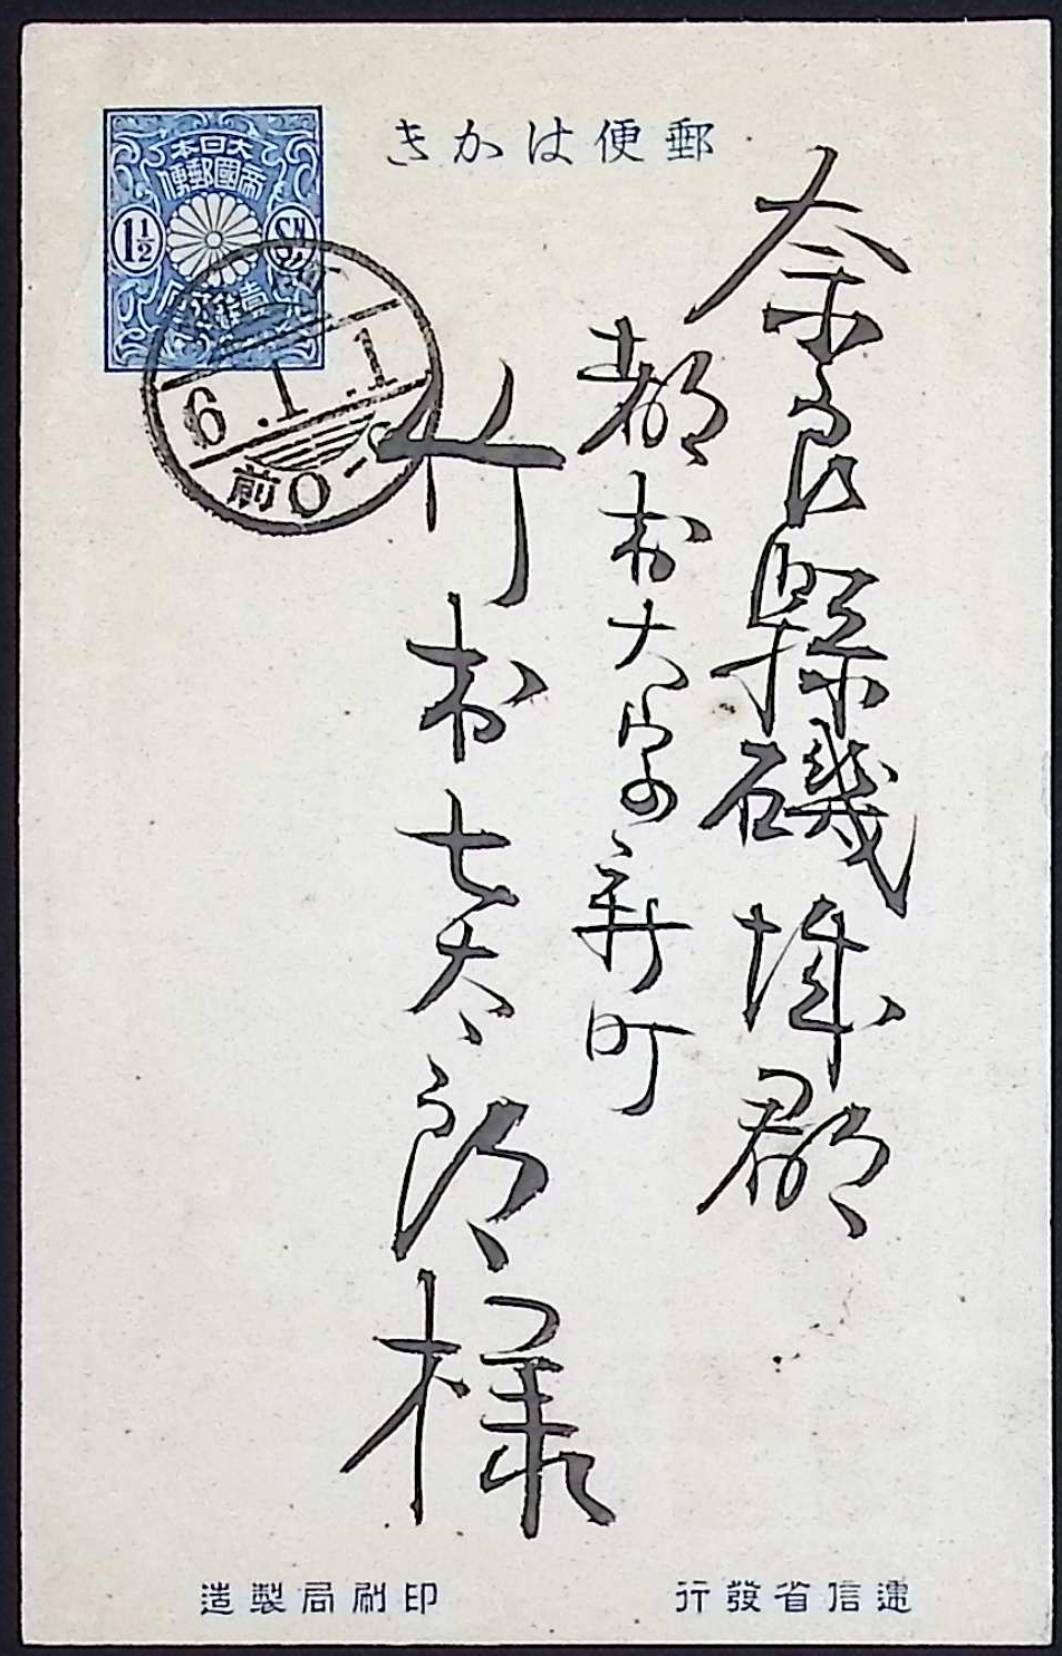 郵便はかき
大日本
帝國郵便
1½
SN
6.1.1
前0-
奈良縣磯城郡
都村大字新町
竹村七太郎様
遞信省發行
印刷局製造